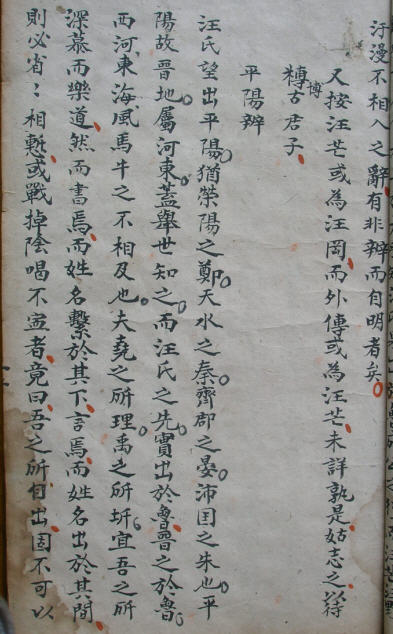 汙漫不相入之辭有非辨而自明者矣
又按汪芒或為汪罔而外傳或為汪芒未詳孰是姑志之以待
博
博古君子
平陽辨
汪氏望出平陽猶滎陽之鄭天水之秦齊郡之晏沛国之朱也平
陽故晉地屬河東蓋舉世知之而汪氏之先實出於魯晉之於魯
西河東海風馬牛之不相及也夫堯之所理禹之所 宜吾之所
深慕而樂道然而書焉而姓名繫於其下言焉而姓名出於其間
則必省〻相 或戰掉陰唱不 者竟曰吾之所自出固不可以